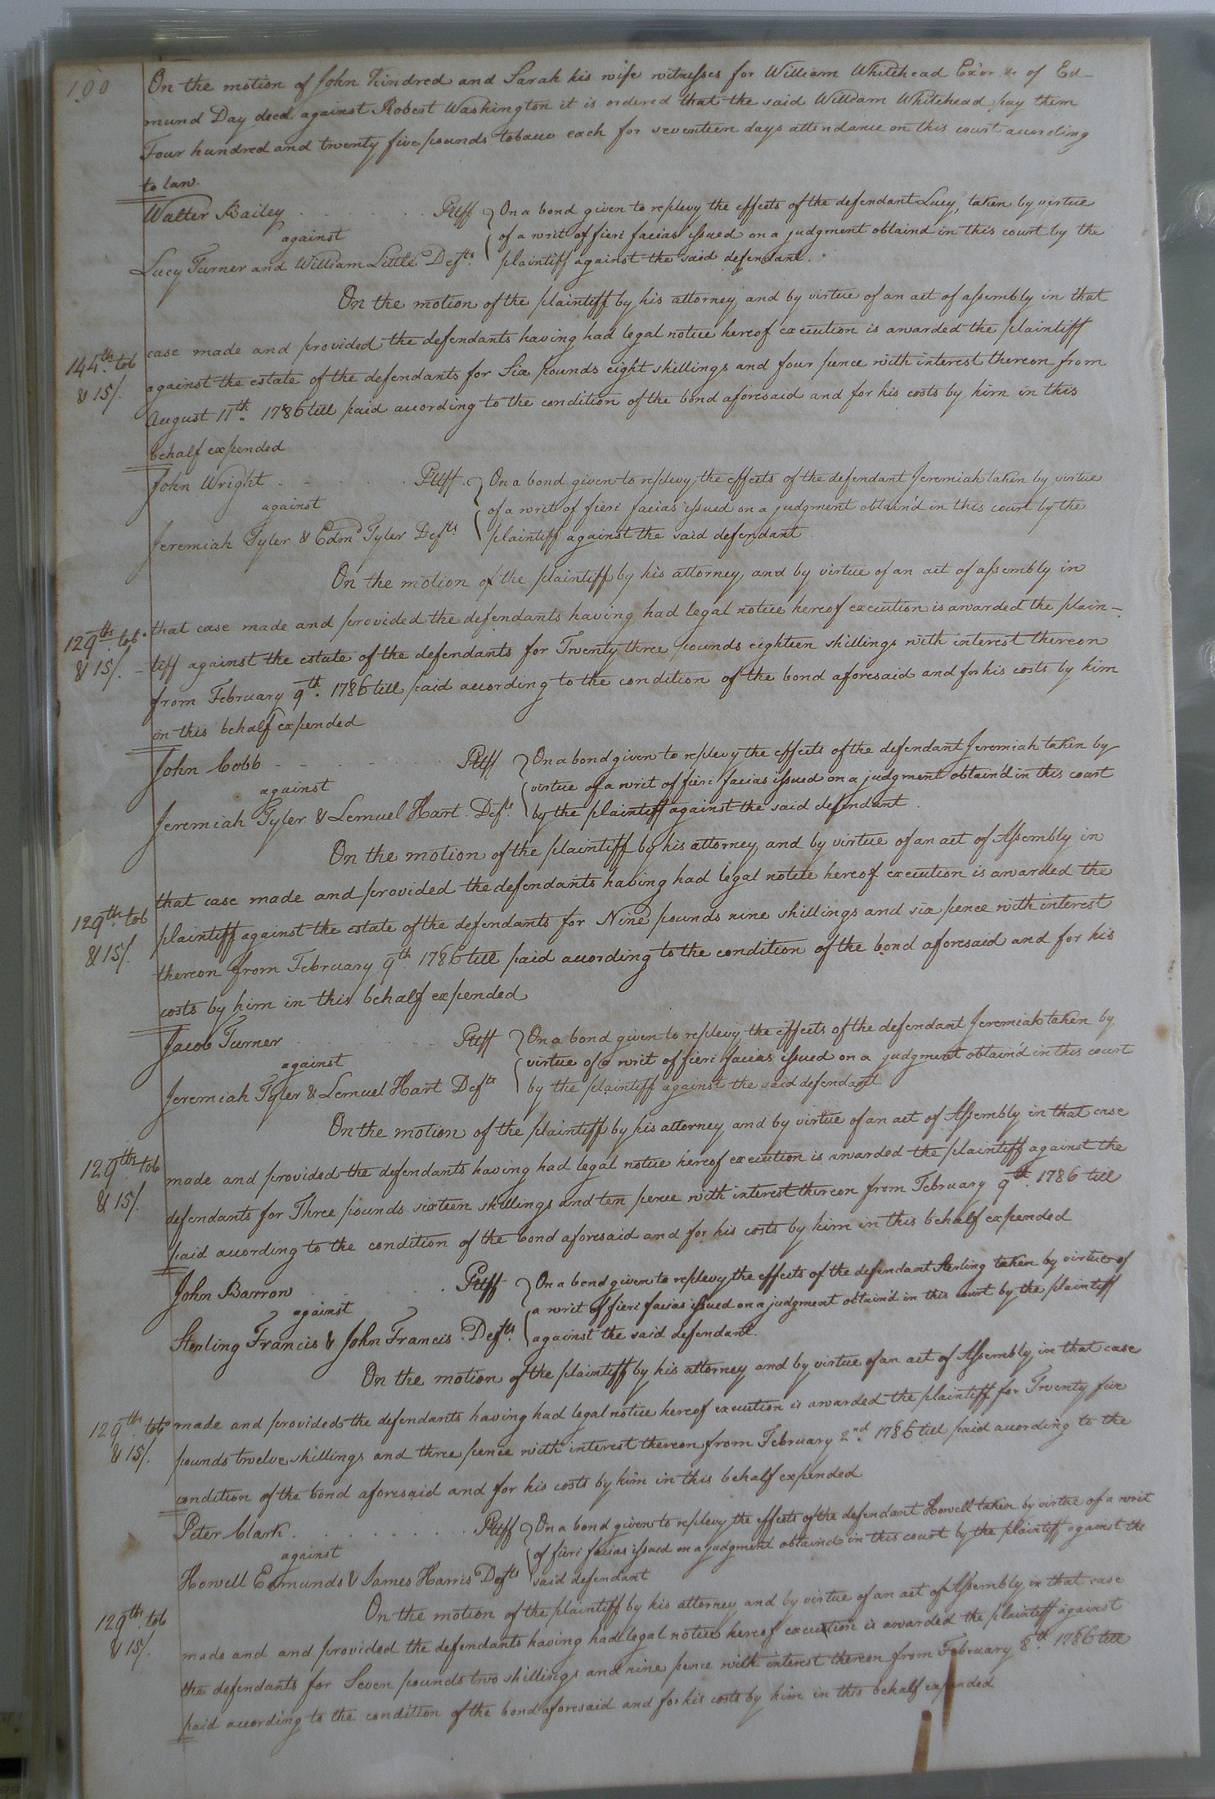 100
On the motion of John Kindred and Sarah his wife witnesses for William Whitehead Exor &c of Ed-
mund Day decd against Robert Washington it is ordered that the said William Whitehead pay them
Four hundred and twenty five pounds tobacco each for seventeen days attendance on this court according
to law.
Walter Bailey . . . . Pltff
against
Lucy Turner and William Little Defts
On a bond given to replevy the effects of the defendant Lucy, taken by virtue
of a writ of fieri facias issued on a judgment obtaind in this court by the
plaintiff against the said defendant.
On the motion of the plaintiff by his attorney and by virtue of an act of assembly in that
case made and provided the defendants having had legal notice hereof execution is awarded the plaintiff
144 lbs. tob
& 15/.
against the estate of the defendants for Six pounds eight shillings and four pence with interest thereon from
August 11th. 1786 till paid according to the condition of the bond aforesaid and for his costs by him in this
behalf expended
John Wright . . . . Pltff.
against
Jeremiah Tyler & Edmd Tyler Defts
On a bond given to replevy the effects of the defendant Jeremiah taken by virtue
of a writ of fieri facias issued on a judgment obtain'd in this court by the
plaintiff against the said defendant
On the motion of the plaintiff by his attorney, and by virtue of an act of assembly in
129 lbs. tob.
& 15/.
that case made and provided the defendants having had legal notice hereof execution is awarded the plain-
tiff against the estate of the defendants for Twenty three pounds eighteen shillings with interest thereon
from February 9th. 1786 till paid according to the condition of the bond aforesaid and for his costs by him
in this behalf expended
John Cobb . . . . Pltff
against
Jeremiah Tyler & Lemuel Hart. Defts.
On a bond given to replevy the effects of the defendant Jeremiah taken by
virtue of a writ of fieri facias issued on a judgment obtain'd in this court
by the plaintiff against the said defendant.
On the motion of the plaintiff by his attorney and by virtue of an act of Assembly in
that case made and provided the defendants having had legal notice hereof execution is awarded the
129 lbs. tob
& 15/.
plaintiff against the estate of the defendants for Nine pounds nine shillings and six pence with interest
thereon from February 9th 1786 till paid according to the condition of the bond aforesaid and for his
costs by him in this behalf expended
Jacob Turner . . . . Pltff
against
Jeremiah Tyler & Lemuel Hart Defts
On a bond given to replevy the effects of the defendant Jeremiah taken by
virtue of a writ of fieri facias issued on a judgment obtain'd in this court
by the plaintiff against the said defendant
On the motion of the plaintiff by his attorney and by virtue of an act of Assembly in that case
129 lbs tob
& 15/.
made and provided the defendants having had legal notice hereof execution is awarded the plaintiff against the
defendants for Three pounds sixteen shillings and ten pence with interest thereon from February 9th. 1786 till
paid according to the condition of the bond aforesaid and for his costs by him in this behalf expended
John Barrow . . . . Pltff
against
Sterling Francis & John Francis. Defts.
On a bond given to replevy the effects of the defendant Sterling taken by virtue of
a writ of fieri facias issued on a judgment obtain'd in this court by the plaintiff
against the said defendant.
On the motion of the plaintiff by his attorney and by virtue of an act of Assembly in that case
129 lbs. tob
& 15/.
made and provided the defendants having had legal notice hereof execution is awarded the plaintiff for Twenty five
pounds twelve shillings and three pence with interest thereon from February 2nd. 1786 till paid according to the
condition of the bond aforesaid and for his costs by him in this behalf expended
Peter Clark . . . . Pltff
against
Howell Edmunds & James Harris Defts
On a bond given to replevy the effects of the defendant Howell taken by virtue of a writ
of fieri facias issued on a judgment obtaind in this court by the plaintiff against the
said defendant
On the motion of the plaintiff by his attorney and by virtue of an act of Assembly in that case
129 lbs. tob
& 15/.
made and and provided the defendants having had legal notice hereof execution is awarded the plaintiff against
the defendants for Seven pounds two shillings and nine pence with interest thereon from February 8th. 1786 till
paid according to the condition of the bond aforesaid and for his costs by him in this behalf expended